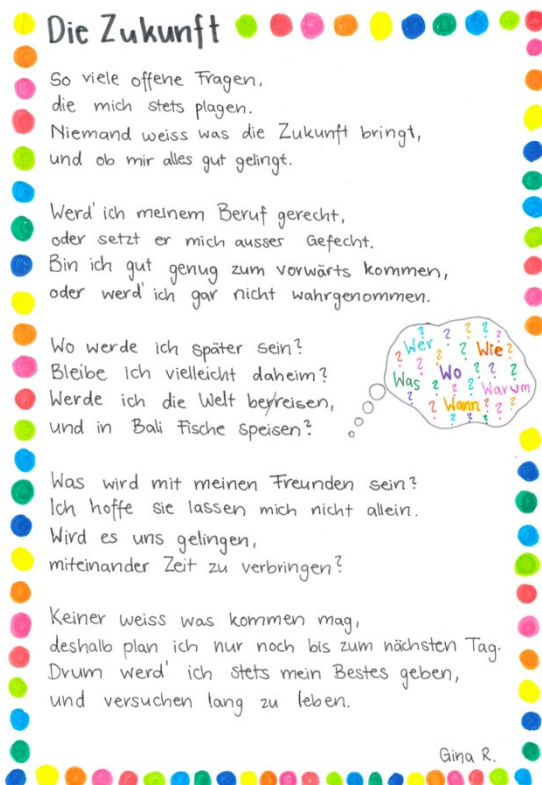 Die Zukunft
So viele offene Fragen,
die mich stets plagen.
Niemand weiss was die Zukunft bringt,
und ob mir alles gut gelingt.
Werd' ich meinem Beruf gerecht,
oder setzt er mich ausser Gefecht.
Bin ich gut genug zum vorwärts kommen,
oder werd' ich gar nicht wahrgenommen.
Wo werde ich später sein?
Bleibe Ich vielleicht daheim?
Werde ich die Welt bereisen,
und in Bali Fische speisen?
? ? ? ? ?
Wer ? ? Wie ?
? ? Wo ? ?
Was ? ? ? Warum
? Wann ? ?
? ? ?
Was wird mit meinen Freunden sein?
Ich hoffe sie lassen mich nicht allein.
Wird es uns gelingen,
miteinander Zeit zu verbringen?
Keiner weiss was kommen mag,
deshalb plan ich nur noch bis zum nächsten Tag.
Drum werd' ich stets mein Bestes geben,
und versuchen lang zu leben.
Gina R.